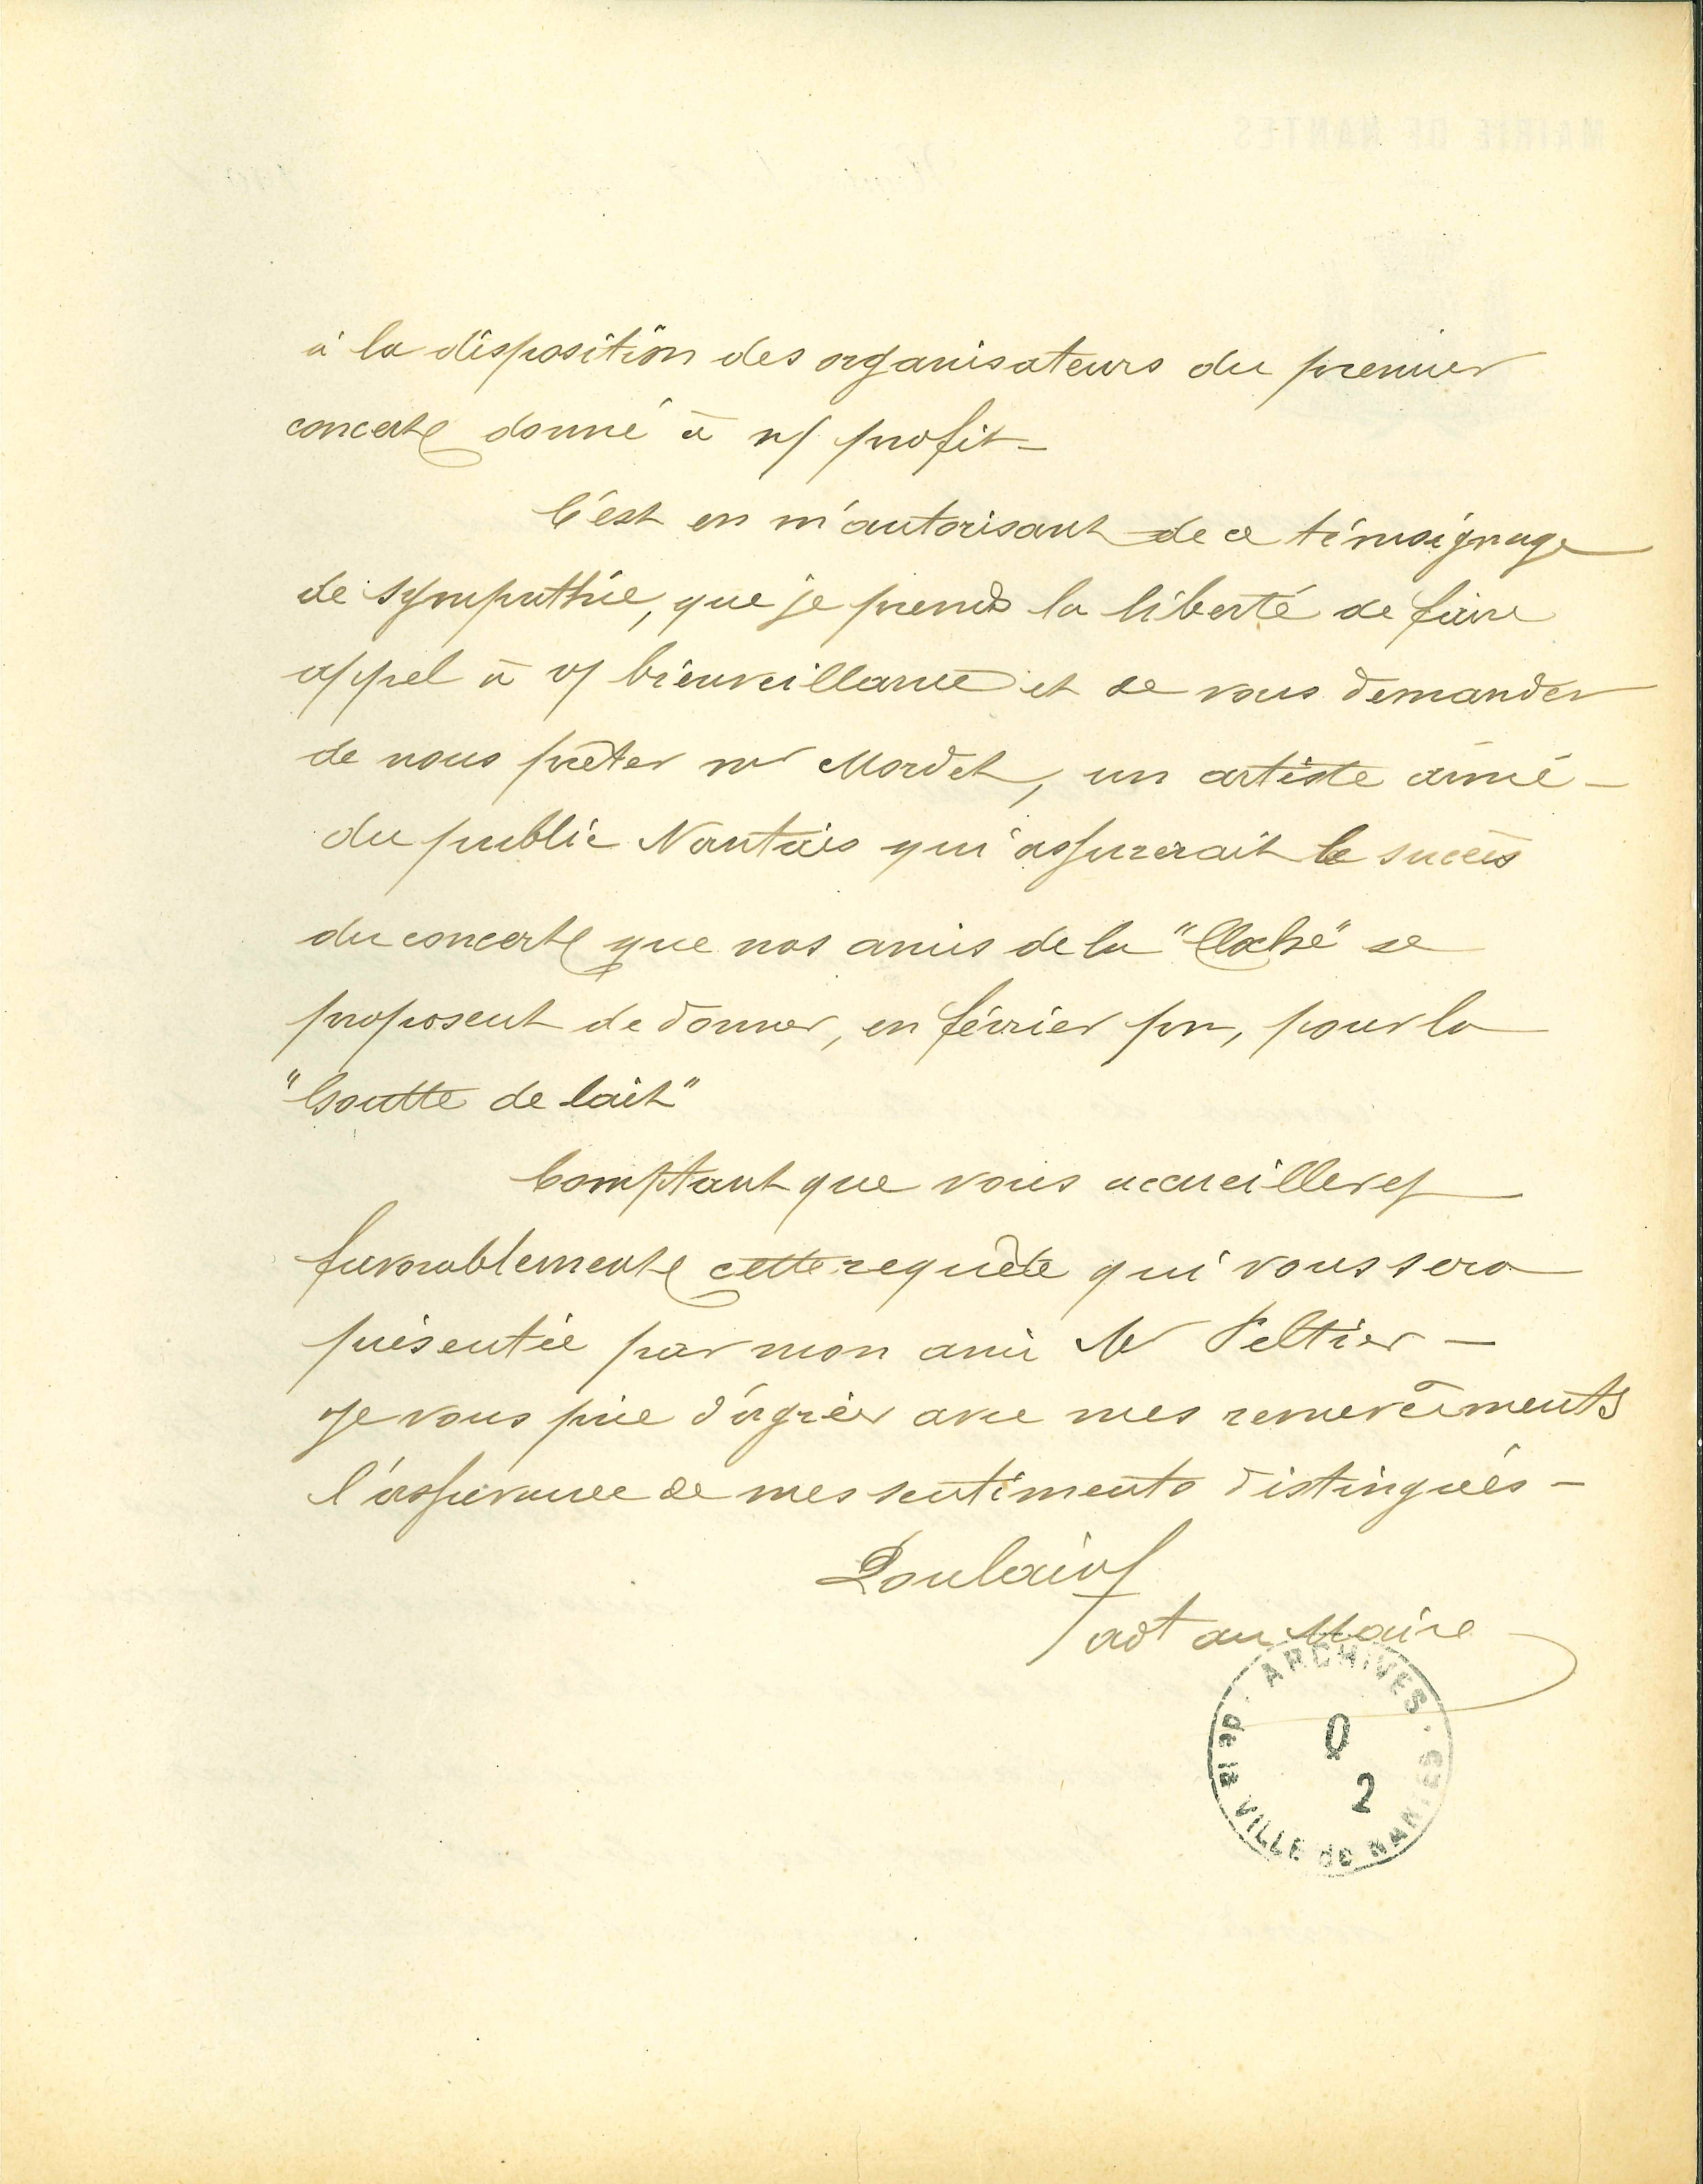 à la disposition des organisateurs du premier
concert donné à n/ profit –
C'est en m'autorisant de ce témoignage
de sympathie, que je prends la liberté de faire
appel à v/ bienveillance et de vous demander
de nous prêter mr Mordet, un artiste aimé –
du public Nantais qui assurerait le succès
du concert que nos amis de la "Cloche" se
proposent de donner, en février pn, pour la
"Goutte de lait"
Comptant que vous accueillerez
favorablement cette requête qui vous sera
présentée par mon ami Mr Peltier –
Je vous prie d'agréer avec mes remerciements
l'assurance de mes sentiments distingués –
Poulain
adt au Maire
ARCHIVES de la VILLE de NANTES
O
2
MAIRIE DE NANTES